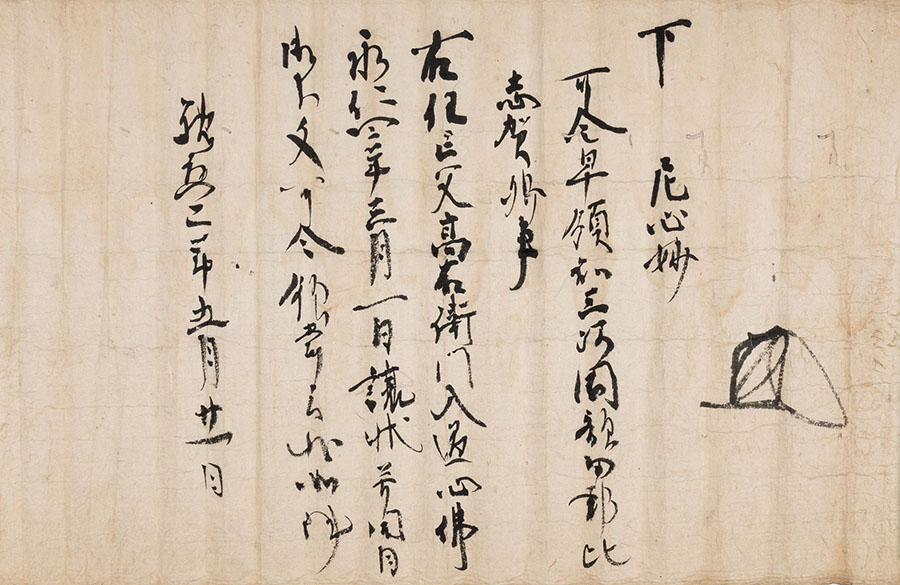 下 尼心妙
可令早領知三河国額田郡比
志賀郷事
右任亡父高右衛門入道心佛
永仁四年三月一日譲状并同日
御下文可令領掌之状如件
二年五月廿一日